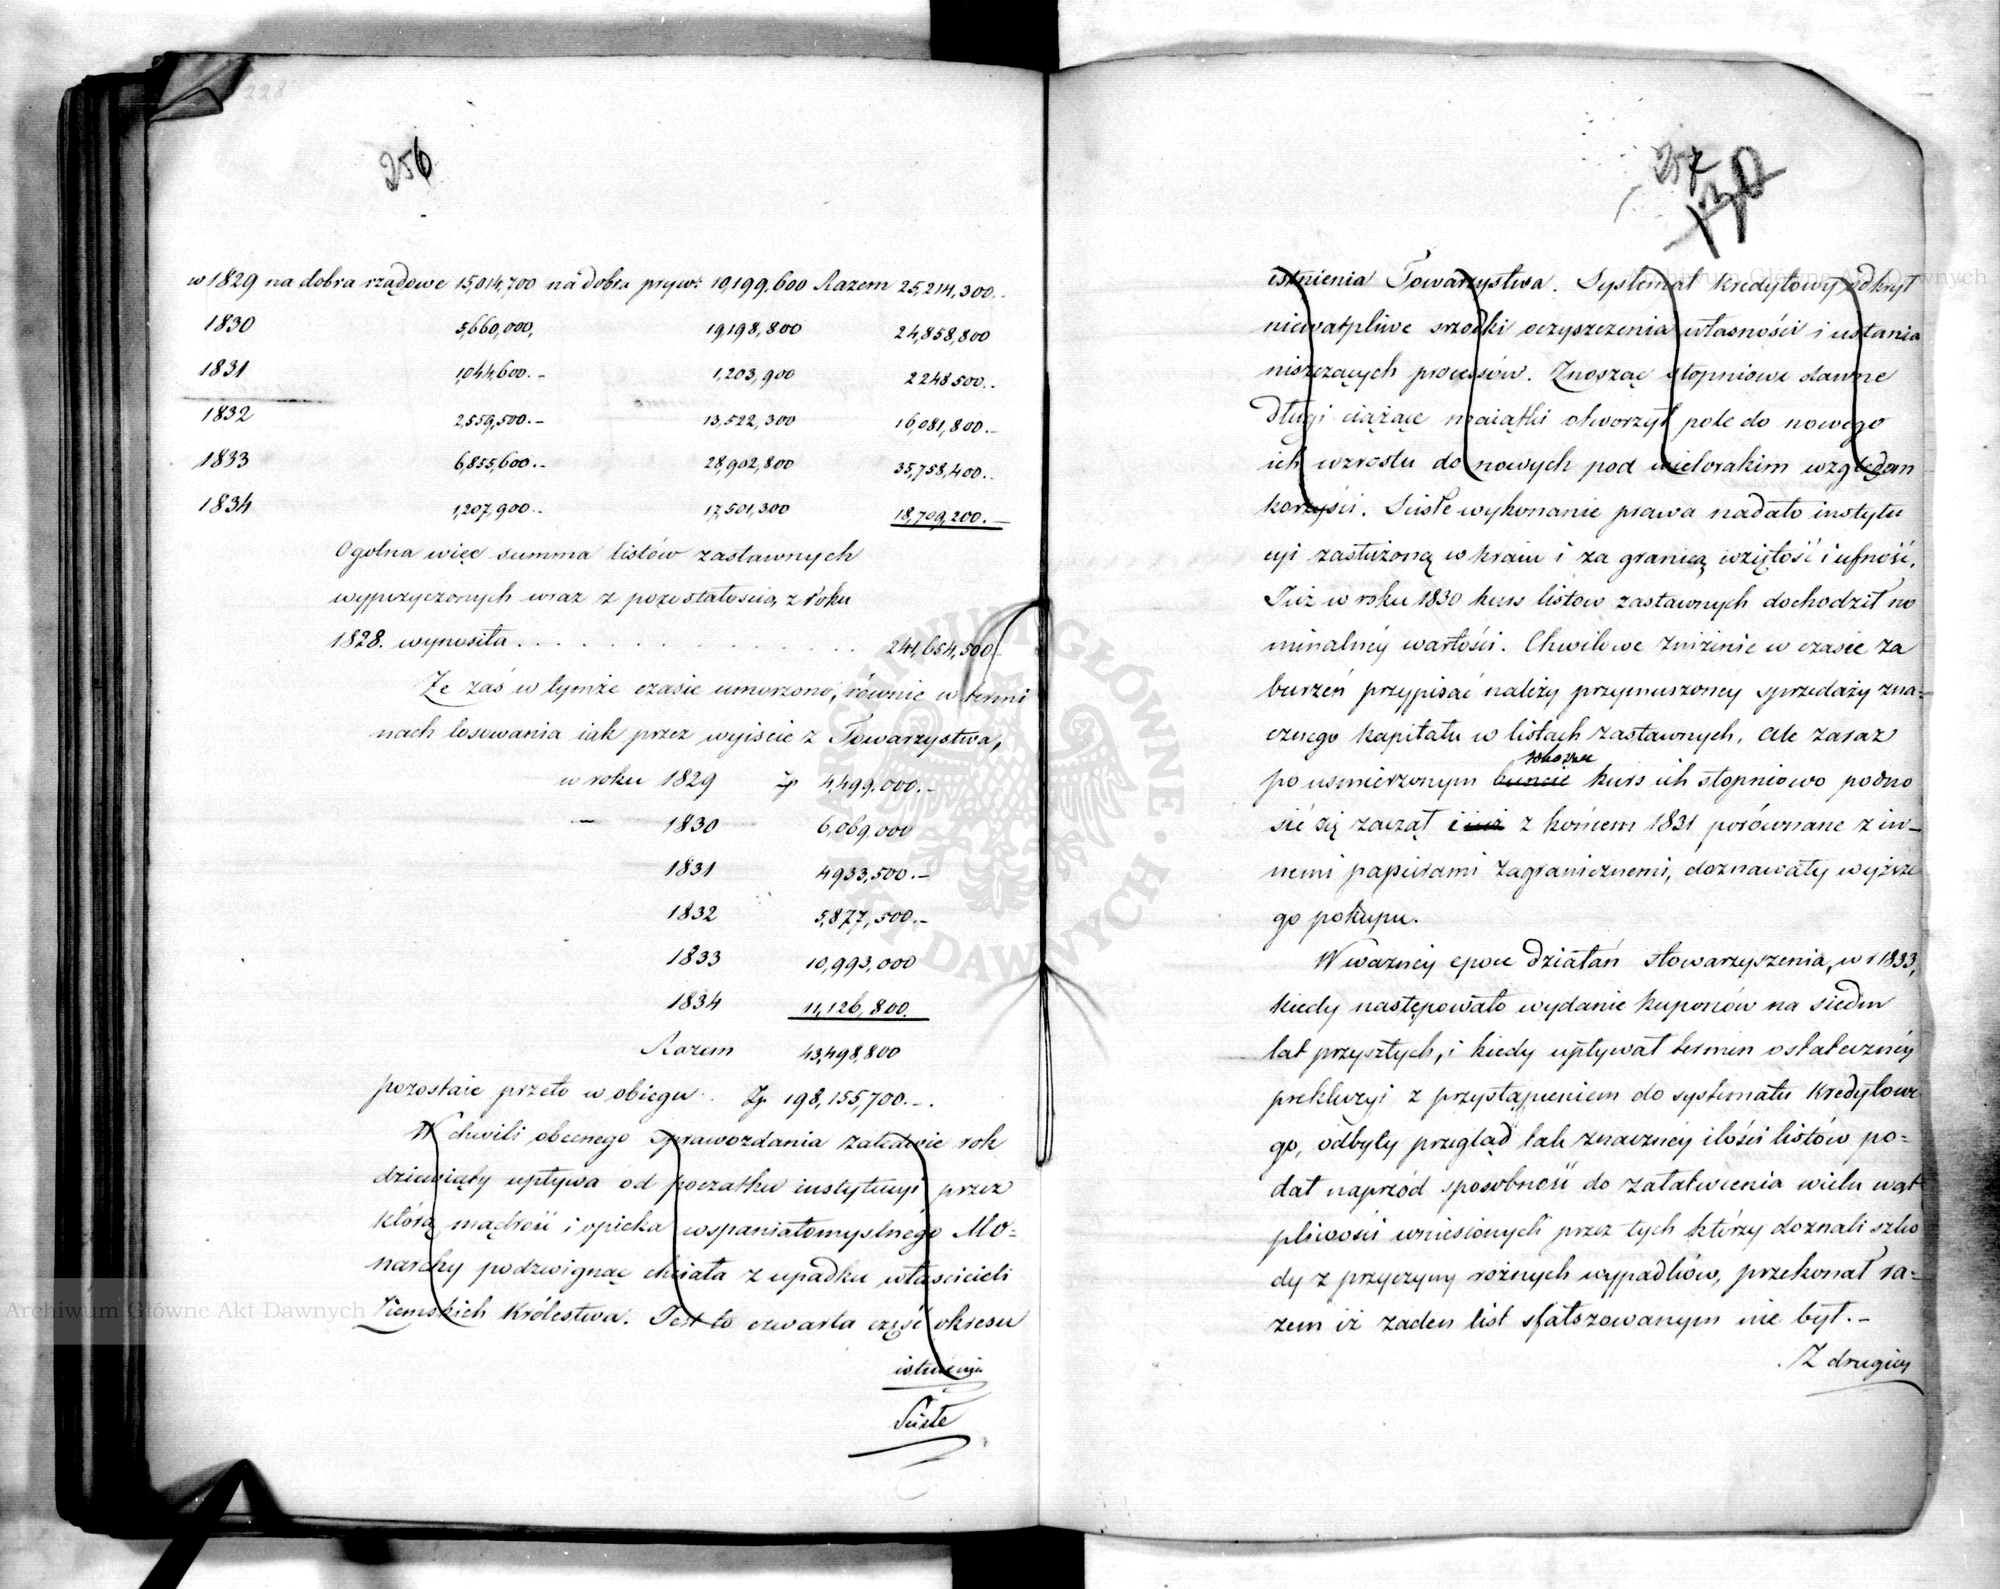 228
256
w 1829 na dobra rządowe 15,014,700 na dobra pryw: 10,199,600 Razem 25,214,300.-
1830 5,660,000, 19,198,800 24,858,800
1831 1,044,600.- 1,203,900 2,248,500.-
1832 2,559,500.- 13,522,300 16,081,800.-
1833 6,855,600.- 28,902,800 35,758,400.-
1834 1,207,900.- 17,501,300 18,709,200.-
Ogolna więc summa listów zastawnych
wypożyczonych wraz z pozostałością z roku
1828. wynosiła . . . . . . . . . . 241,654,500
Ze zaś w tymże czasie umorzono, równie w termi
nach losowania iak przez wyiscie z Towarzystwa,
w roku 1829 Zp 4,499,000.-
- 1830 6,069,000
1831 4,933,500.-
1832 5,877,500.-
1833 10,993,000
1834 11,126,800.
Razem 43,498,800
pozostaie przeto w obiegu . Zp 198,155,700.-.
W chwili obecnego sprawozdania zaledwie rok
dziewiąty upływa od początku instytucyi przez
którą mądrość i opieka wspaniałomyslnégo Mo=
narchy podzwignąć chciała z upadku właścicieli
Ziemskich Królestwa. Jest to czwarta część okresu
istnienia
Sciste
257
130
istnienia Towarzystwa. Systemat kredytowy odkrył
niewątpliwe srzodki oczyszczenia własności i ustania
niszczących processów. Znosząc stopniowe dawne
długi ciążące maiątki otworzył pole do nowego
ich wzrostu do nowych pod wielorakim względem
korzyści. Sciste wykonanie prawa nadało instytu
cyi zasłużoną w kraiu i za granicą wziętość i ufność.
Już w roku 1830 kurs listow zastawnych dochodził no
minalnéy wartości. Chwilowe zniżenie w czasie za
burzeń przypisać należy przymuszoney sprzedaży zna=
cznego kapitału w listach zastawnych. Ale zaraz
rokoszu
po usmierzonym buncie kurs ich stopniowo podno
sić się zaczął i iuż z końcem 1831 porównane z in-
nemi papierami zagranicznemi, doznawały wyższe
go pokupu.
W ważnéy epoce działań stowarzyszenia, w r 1833,
kiedy następowało wydanie kuponów na siedm
lat przyszłych, i kiedy upływał termin ostatecznéy
prekluzyi z przystąpieniem do systematu kredytowe
go, odbyty przegląd tak znacznéy ilości listów po=
dał naprzód sposobność do załatwienia wielu wąt
pliwości wniesionych przez tych którzy doznali szko
dy z przyczyny rożnych wypadków, przekonał ra=
zem iż żaden list sfałszowanym nie był.-
Z drugiey
Archiwum Główne Akt Dawnych
Archiwum Główne Akt Dawnych
ARCHIWUM GŁÓWNE AKT DAWNYCH